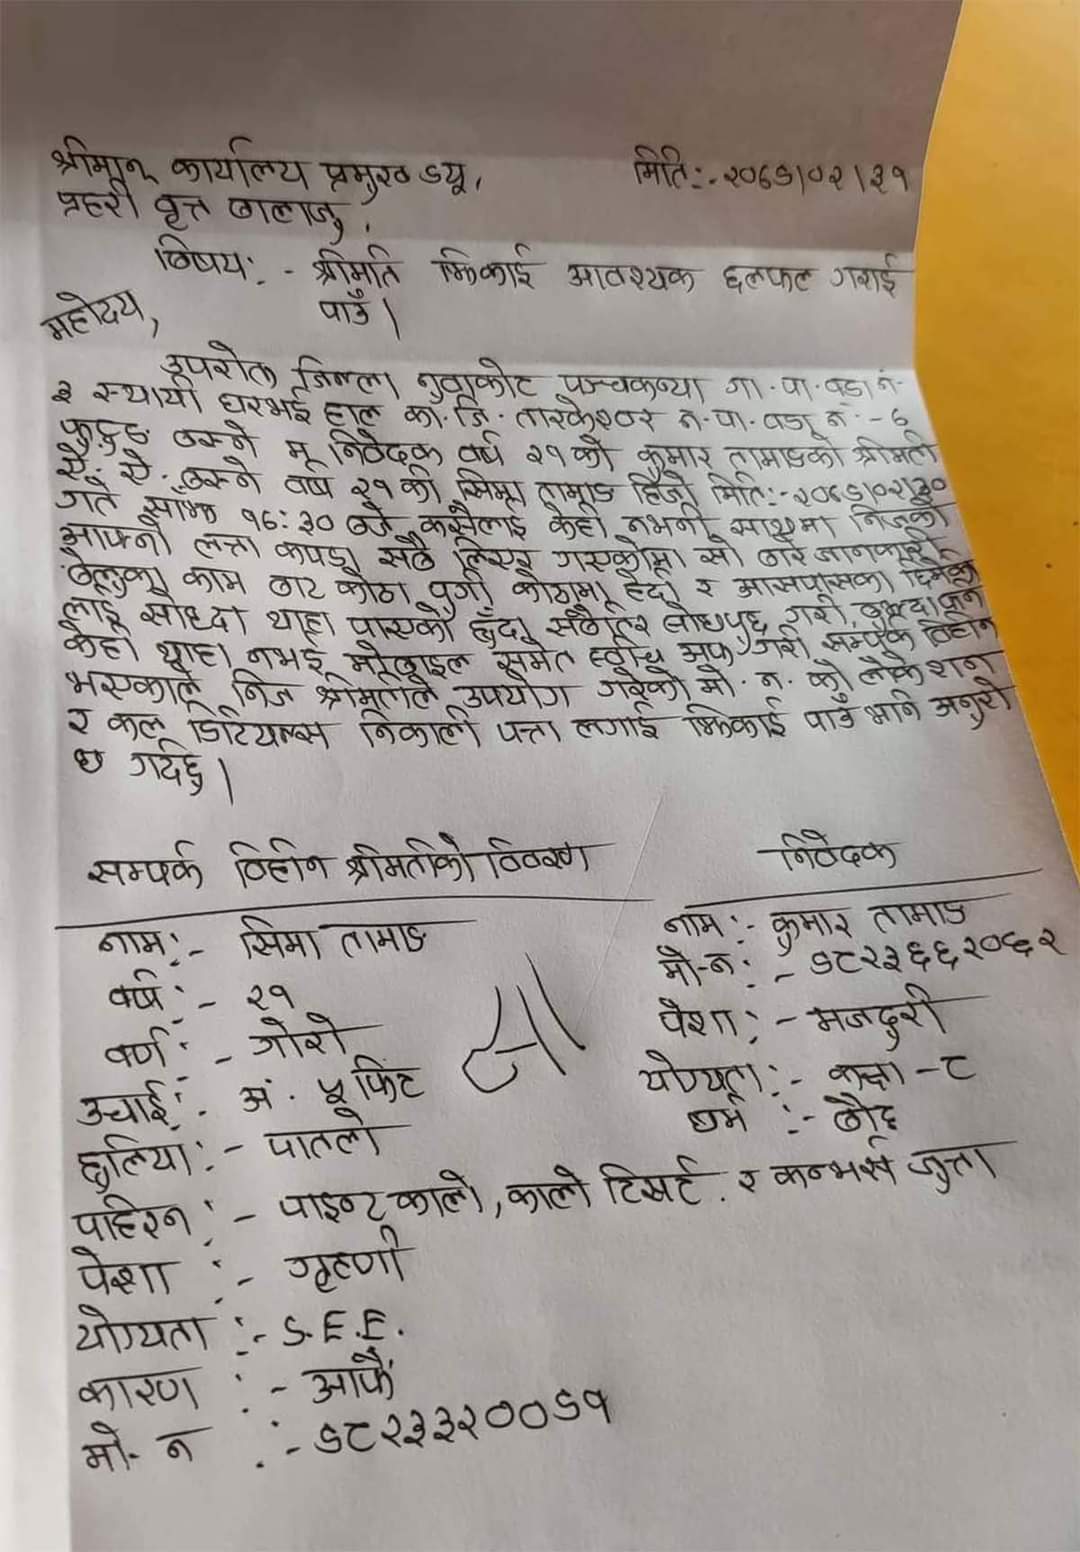 श्रीमान् कार्यालय प्रमुख ज्यू,
मिति:- २०७९।०२।३१
प्रहरी वृत्त बालाजु,
विषय:- श्रीमति झिकाई आवश्यक छलफल गराई
पाउँ।
महोदय,
उपरोक्त जिल्ला नुवाकोट पञ्चकन्या गा.पा. वडा नं.
३ स्थायी घरभई हाल का.जि. तारकेश्वर न.पा. वडा नं.-७
फुटुङ बस्ने म निवेदक वर्ष २१ को कुमार तामाङको श्रीमती
ऐ. ऐ. बस्ने वर्ष २१ की सिमा तामाङ हिजो मिति:-२०७९।०२।३०
गते साँझ १७:३० बजे कसैलाई केही नभनी साथमा निजको
आफ्नो लत्ता कपडा सबै लिएर गएकोमा सो बारे जानकारी
बेलुका काम बाट कोठा पुगी कोठामा हेर्दा र आसपासका छिमेकी
लाई सोध्दा थाहा पाएको हुँदा सबैतिर सोधपुछ गरी बुझ्दा पनि
केही थाहा नभई मोबाइल समेत स्वीच अफ गरी सम्पर्क विहीन
भएकाले निज श्रीमतिले उपयोग गरेको मो.न. को लोकेशन
र कल डिटियल्स निकाली पत्ता लगाई झिकाई पाउँ भनि अनुरो
ध गर्दछु।
सम्पर्क विहीन श्रीमतीको विवरण
निवेदक
नाम:- सिमा तामाङ
वर्ष:- २१
वर्ण:- गोरो
उचाई:- अं. ५ फिट
हुलिया:- पातलो
पहिरन:- पाइन्ट कालो, कालो टिसर्ट. र कन्भर्स जुत्ता
पेशा:- गृहणी
योग्यता:- S.E.E.
कारण:- आफैं
मो- न:- ९८२३३२००९१
नाम:- कुमार तामाङ
मो-न:- ९८२३६६२०६२
पेशा:- मजदुरी
योग्यता:- कक्षा-८
धर्म:- बौद्ध